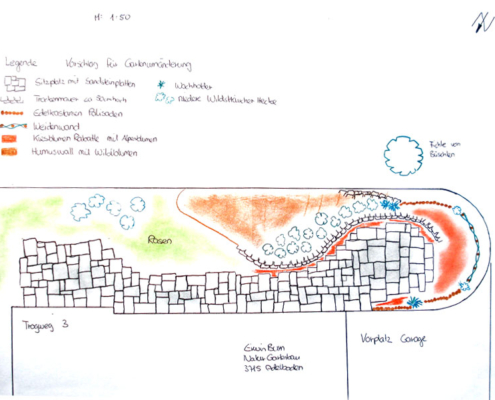 M: 1:50
N
Legende Vorschlag für Gartenumänderung
Sitzplatz mit Sandsteinplatten
Trockenmauer ca
Edelkastanien Palisaden
Weidenwand
Kiesblumen Rabatte mit Alpenblumen
Humuswall mit Wildblumen
Wachholder
niedere Wildsträucher Hecke
Rosen
Tragweg 3
Erwin
Natur Gartenbau
3715 Adelboden
Vorplatz Garage